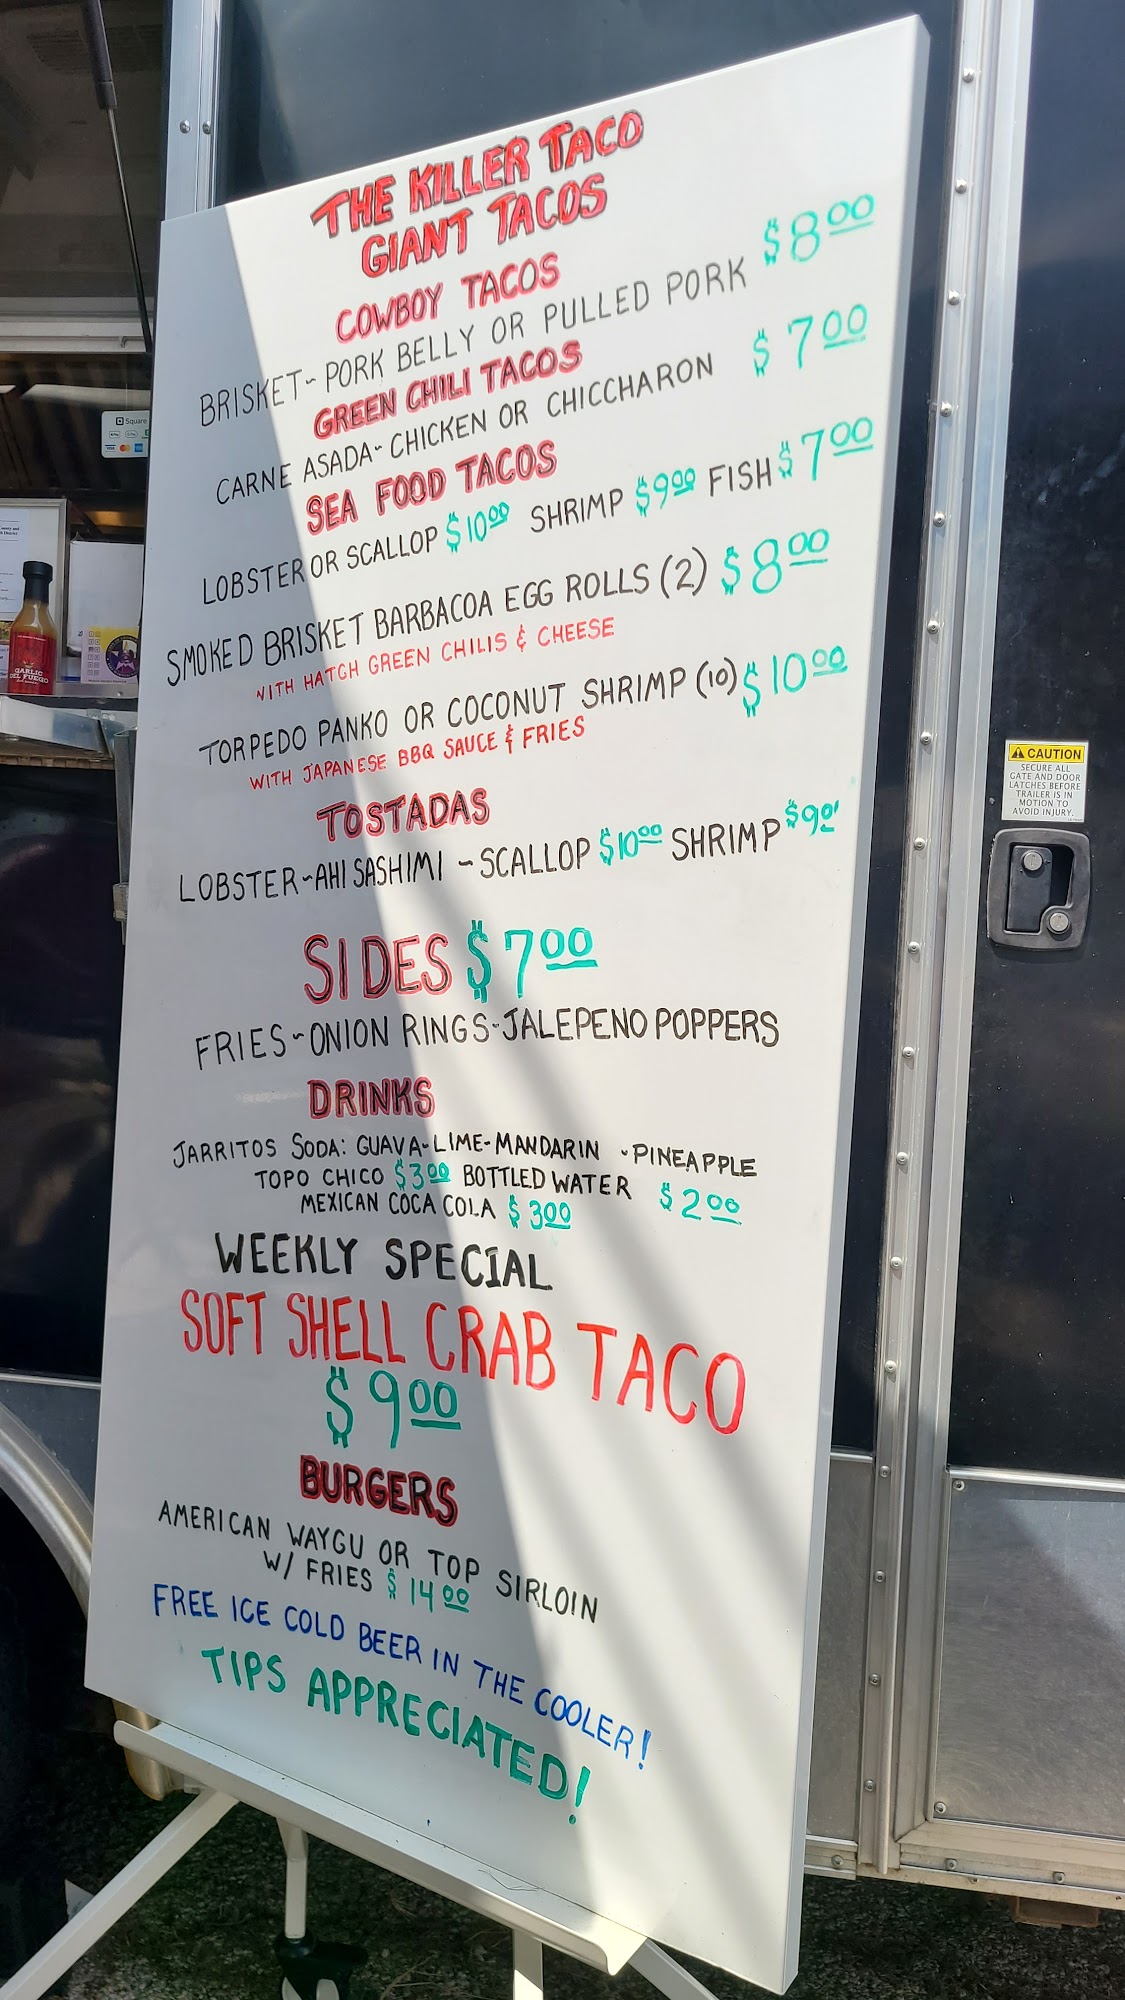 THE KILLER TACO
GIANT TACOS
COWBOY TACOS
BRISKET~PORK BELLY OR PULLED PORK $8.00
GREEN CHILI TACOS
CARNE ASADA~CHICKEN OR CHICCHARON $7.00
SEA FOOD TACOS
LOBSTER OR SCALLOP $10.00 SHRIMP $9.00 FISH $7.00
SMOKED BRISKET BARBACOA EGG ROLLS (2) $8.00
WITH HATCH GREEN CHILIS & CHEESE
TORPEDO PANKO OR COCONUT SHRIMP (10) $10.00
WITH JAPANESE BBQ SAUCE & FRIES
TOSTADAS
LOBSTER~AHI SASHIMI ~SCALLOP $10.00 SHRIMP $9.00
SIDES $7.00
FRIES~ONION RINGS-JALEPENO POPPERS
DRINKS
JARRITOS SODA: GUAVA-LIME-MANDARIN -PINEAPPLE
TOPO CHICO $3.00 BOTTLED WATER $2.00
MEXICAN COCA COLA $3.00
WEEKLY SPECIAL
SOFT SHELL CRAB TACO
$9.00
BURGERS
AMERICAN WAYGU OR TOP SIRLOIN
W/ FRIES $14.00
FREE ICE COLD BEER IN THE COOLER!
TIPS APPRECIATED!
Square
GARLIC
DEL FUEGO
CAUTION
SECURE ALL
GATE AND DOOR
LATCHES BEFORE
TRAILER IS IN
MOTION TO
AVOID INJURY.